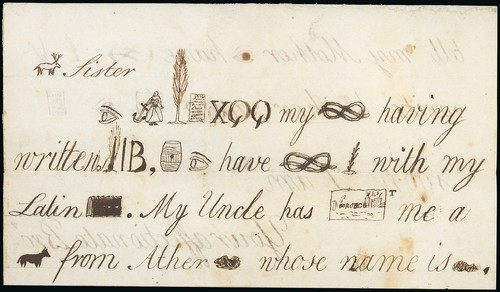 Sister
XQQ my having
written IB, have with my
Latin . My Uncle has T me a
from Ather whose name is .